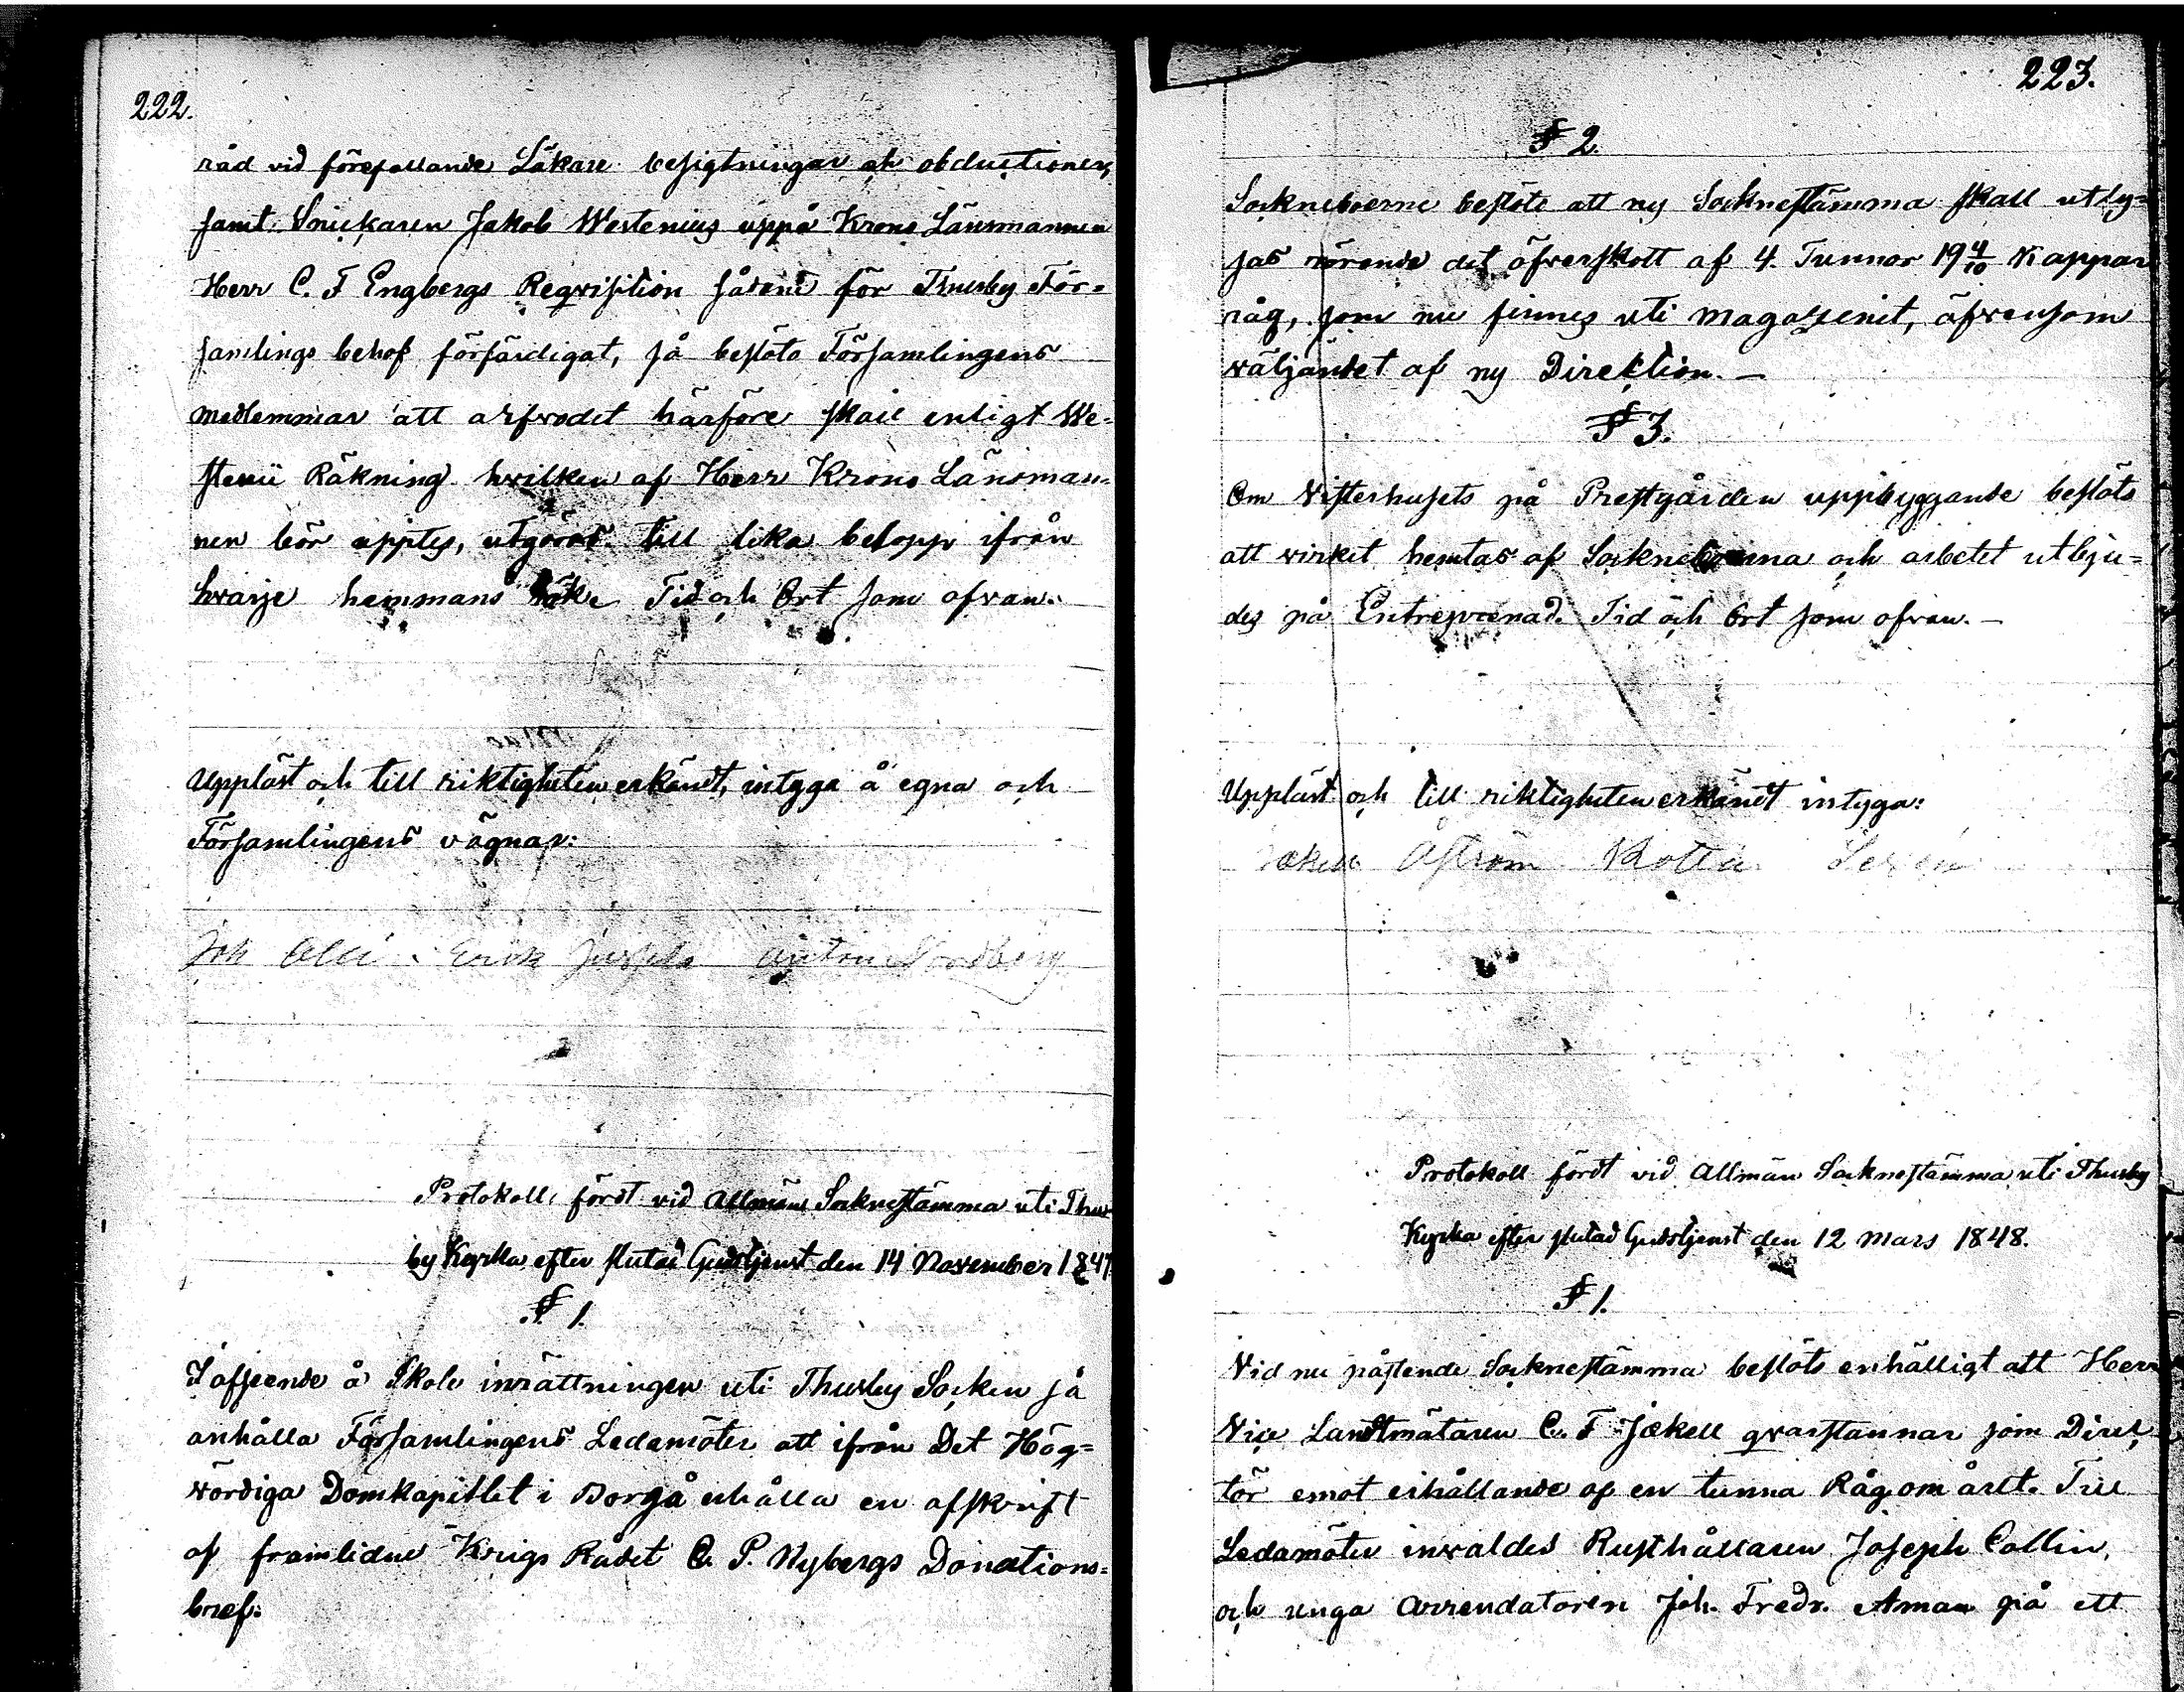 222.
råd vid förefallande Läkare besigtningar och obductioner,
samt Snickaren Jakob Westenius uppå Krono Länsmannen
Herr C. F Engbergs Reqvisition sådene för Thusby För-
samlings behof förfärdigat, så beslöto Församlingens
medlemmar att arfvodet härföre skall enligt We-
stenii Räkning hvilken af Herr Krono Länsman-
nen bör utgöras till lika belopp ifrån
hvarje hemmans Tid och Ort som ofvan.
Uppläst och till riktigheten erkändt, intyga å egna och
Församlingens vägnar:
Joh Alli Erick Jussila Anton Nordberg
Protokoll, fördt vid Allmän Sockneståmma uti Thus-
by Kyrka efter slutad Gudstjenst den 14 November 1847
§ 1.
I afseende å Skole inrättningen uti Thusby Socken så
anhålla Församlingens Ledamöter att ifrån Det Hög-
wördiga Domkapitlet i Borgå erhålla en afskrift
af framlidne Krigs Rådet C. P. Nybergs Donations-
bref.
223.
§ 2.
Sockneboerne beslöto att ny Sockneståmma skall utly-
sas rörende det öfverskott af 4. Tunnor 19 4/10 Kappar
råg, som nu finnes uti magazenit, äfvensom
väljandet af ny Direktion. —
§ 3.
Om Visterhusets på Prestgården uppbyggande beslöts
att virket hemtas af Socknebönerna och arbetet utbju-
des på Entreprenad. Tid och Ort som ofvan. —
Uppläst och till riktigheten erkändt intyga:
Jækell Åström Skotta
Protokoll fördt vid Allmän Socknestämma uti Thusby
Kyrka efter slutad Gudstjenst den 12 Mars 1848.
§ 1.
Vid nu påstende Socknestämma beslöts enhälligt att Herr
Vice Landtmätaren C. F Jækell qvarstannar som Direk-
tör emot erhållande af en tunna Råg om året. Till
Ledamöter invaldes Rusthållaren Joseph Collin,
och unga Arrendatoren Joh. Fredr. Aman på ett